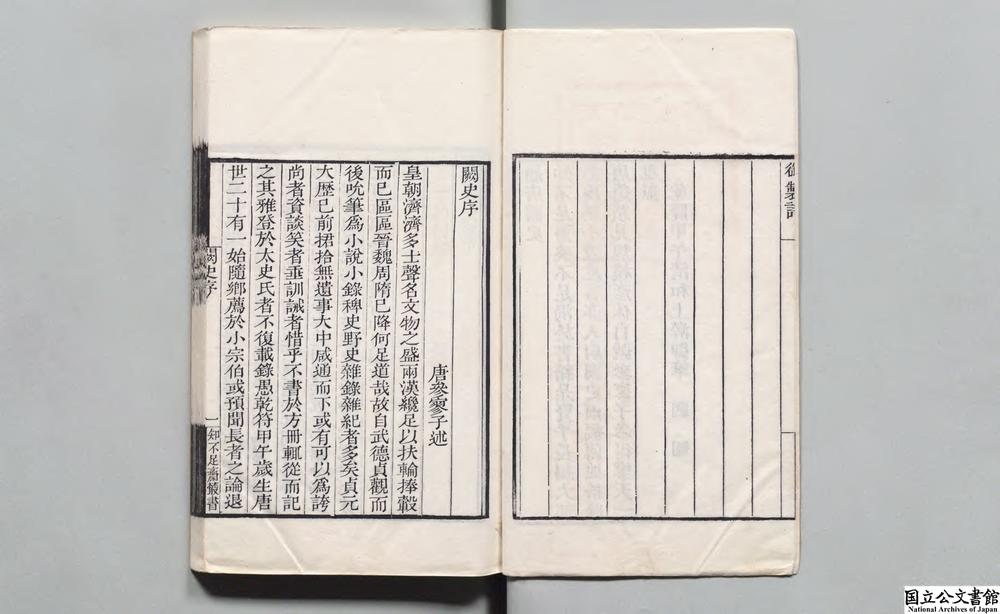 御製詩
闕史序
唐參寥子述
皇朝濟濟多士聲名文物之盛兩漢纔足以扶輪捧轂
而已區區晉魏周隋已降何足道哉故自武德貞觀而
後吮筆爲小說小錄稗史野史雜錄雜紀者多矣貞元
大歷已前捃拾無遺事大中咸通而下或有可以爲誇
尚者資談笑者垂訓誡者惜乎不書於方冊輒從而記
之其雅登於太史氏者不復載錄愚乾符甲午歲生唐
世二十有一始隨鄉薦於小宗伯或預聞長者之論退
闕史序
一
知不足齋叢書
国立公文書館
National Archives of Japan